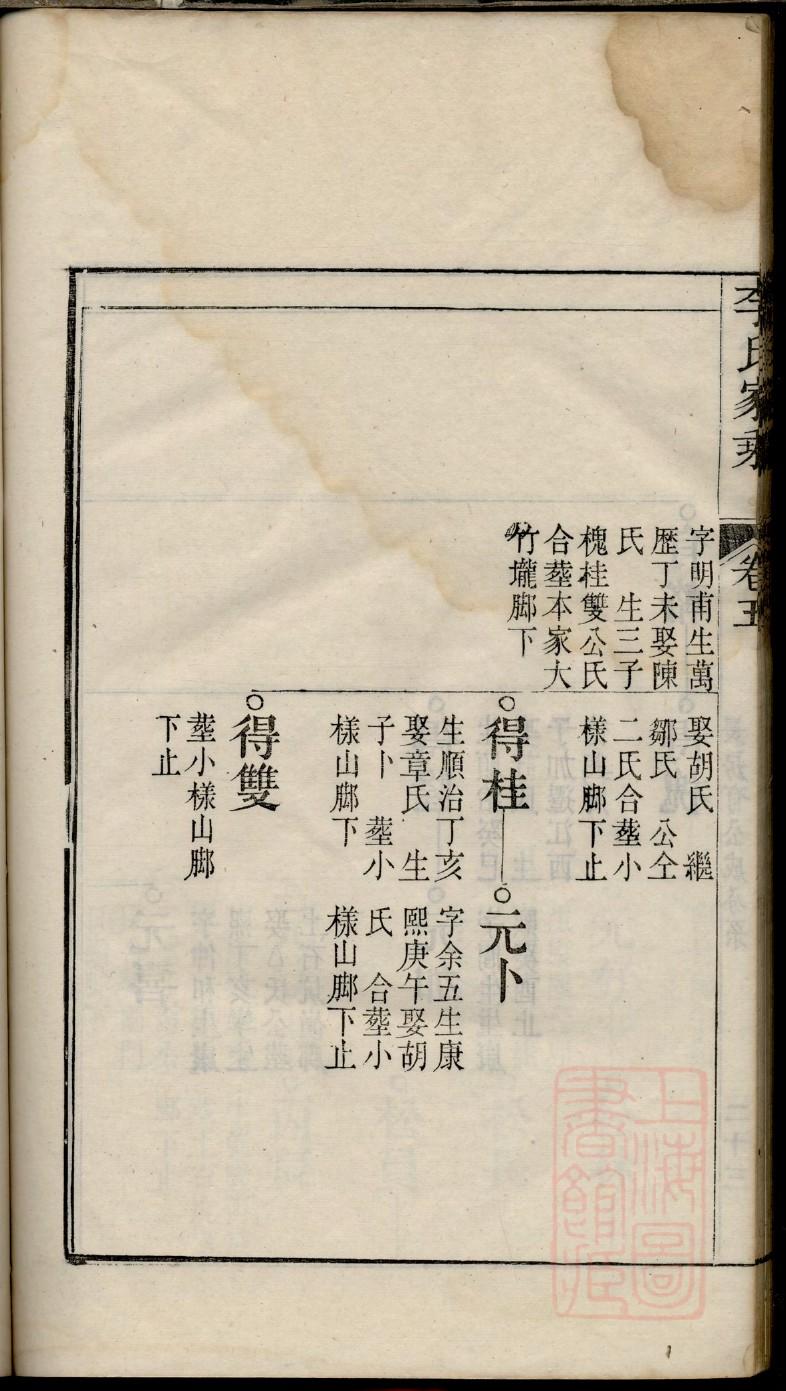 李氏家乘
卷五
字明甫生萬
歷丁未娶陳
氏　生三子
槐桂雙公氏
合塟本家大
竹壠脚下
娶胡氏　繼
鄒氏　公仝
二氏合塟小
樣山脚下止
得桂
生順治丁亥
娶章氏　生
子卜　塟小
樣山脚下
元卜
字余五生康
熙庚午娶胡
氏　合塟小
樣山脚下止
得雙
塟小樣山脚
下止
上海圖
書館藏